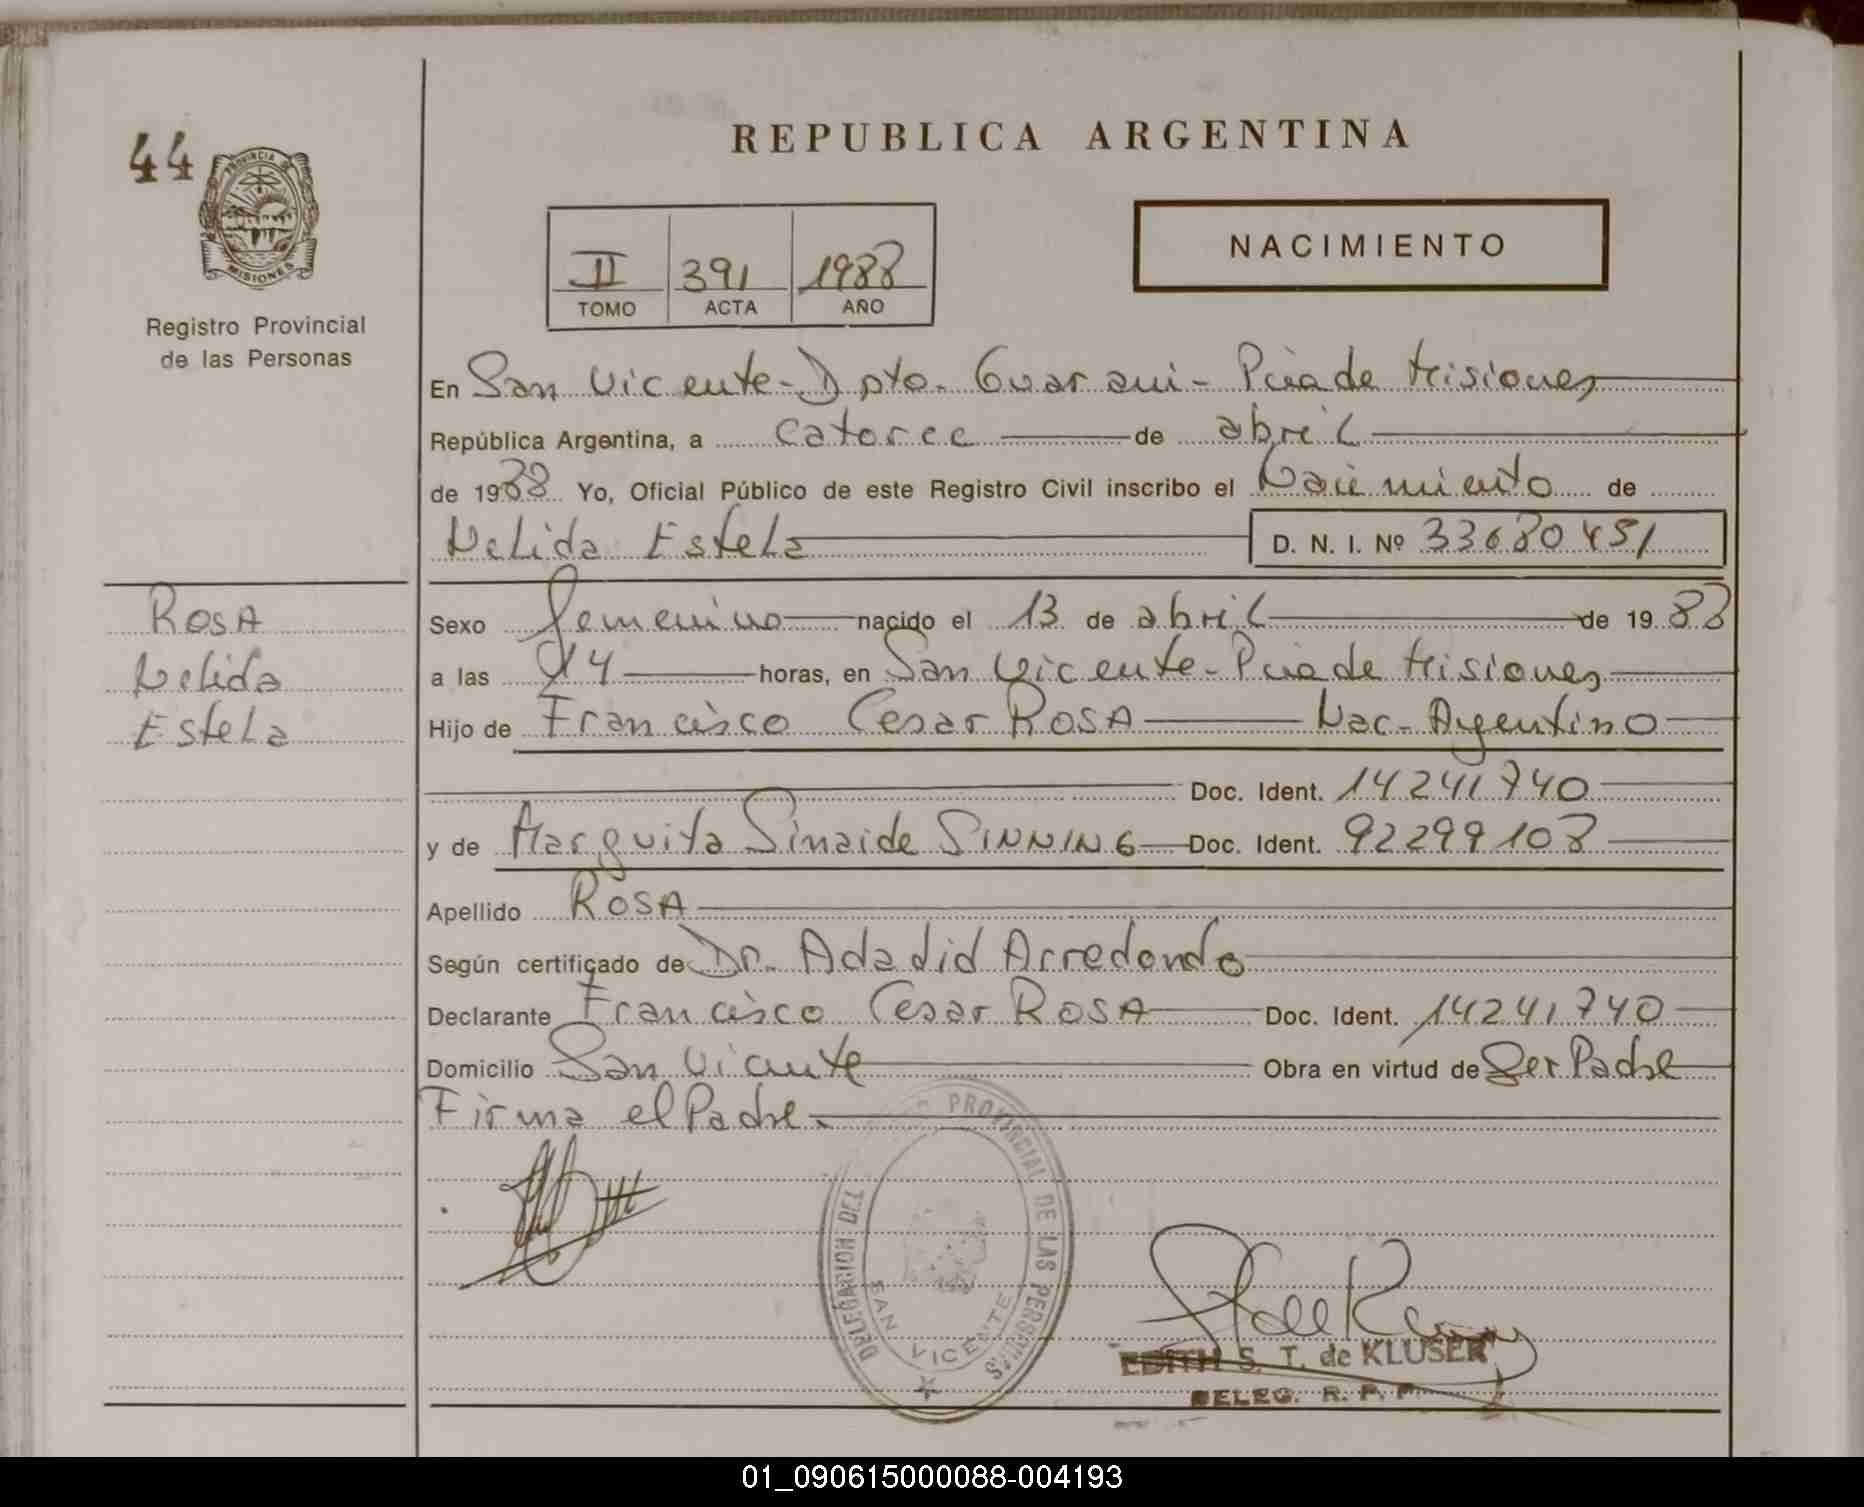 44
REPUBLICA ARGENTINA
PROVINCIA DE
MISIONES
Registro Provincial
de las Personas
II 391 1988
TOMO ACTA AÑO
NACIMIENTO
En San Vicente - Dpto. Guarani - Pcia de Misiones
República Argentina, a catorce de abril
de 1988 Yo, Oficial Público de este Registro Civil inscribo el Nacimiento de
Nelida Estela D. N. I. Nº 33680451
ROSA
Nelida
Estela
Sexo femenino nacido el 13 de abril de 1988
a las 14 horas, en San Vicente - Pcia de Misiones
Hijo de Francisco Cesar ROSA Nac - Argentino
Doc. Ident. 14241740
y de Marguita Sinaide SINNING Doc. Ident. 92299108
Apellido ROSA
Según certificado de Dr. Adadid Arredondo
Declarante Francisco Cesar ROSA Doc. Ident. 14241740
Domicilio San Vicente Obra en virtud de Ser Padre
Firma el Padre.
DELEGACION DEL PROVINCIAL DE LAS PERSONAS
SAN VICENTE
EDITH S. T. de KLUSER
DELEG. R. P. P.
01_090615000088-004193